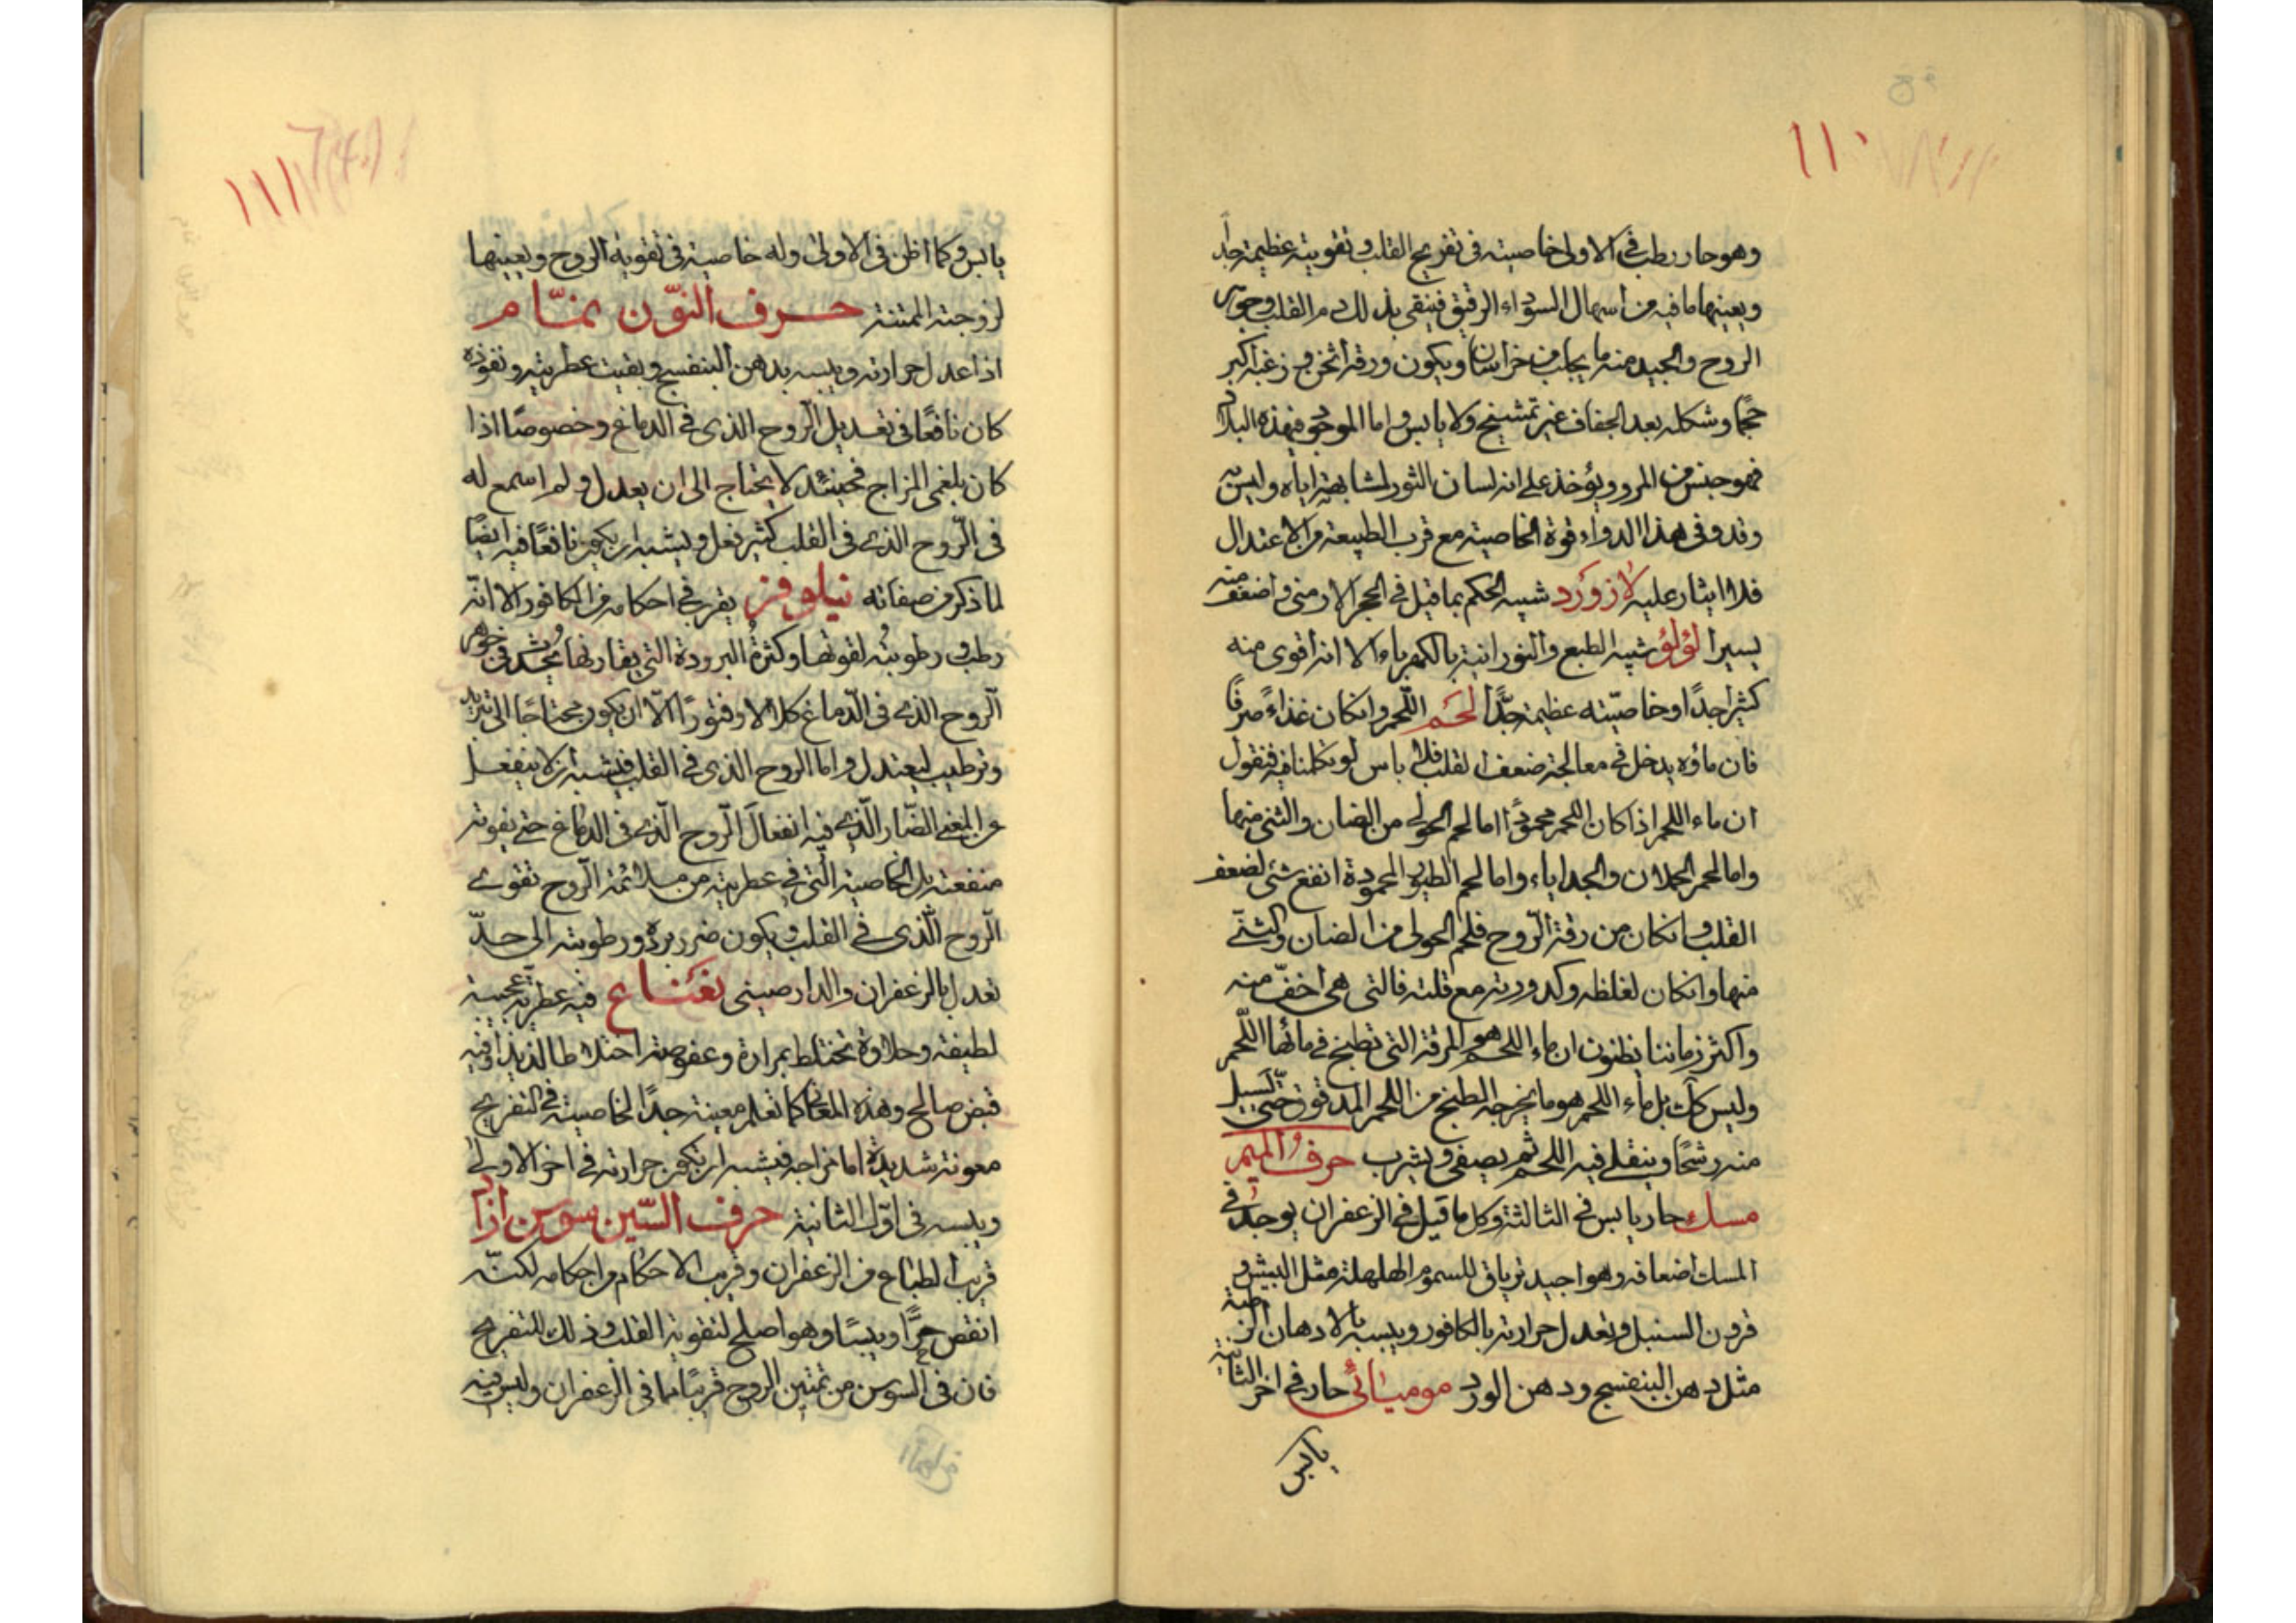 ١١٠
وهو حار رطب في الاولى خاصيته في تفريح القلب وتقويته عظيمة جداً
ويعينها ما فيه من اسهال السوداء الرقيق فينقى بذلك دم القلب وجوهر
الروح والجيد منه ما يجلب من خراسان ويكون ورقه اثخن وزغبه اكبر
حجما وشكله بعد الجفاف غير تمشيخ ولا يابس واما الموجود في هذه البلاد
فهو جنس من المرو ويؤخذ على انه لسان الثور لمشابهته اياه وليس به
وقد وفى هذا الدواء قوة الخاصية مع قرب الطبيعة من الاعتدال
فلا ايثار عليه لازورد شبيه الحكم بما قيل في الحجر الارمنى واضعف منه
يسيرا لؤلؤ شبيه الطبع والنورانية بالكهرباء الا انه اقوى منه
كثيرا جدًا وخاصيّته عظيمة جدًّا لحم اللّحم وانكان غذاءً صرفًا
فان ماؤه يدخل في معالجة ضعف القلب فلا باس لو تكلمنا فيه فنقول
ان ماء اللحم اذا كان اللحم محمودًا اما لحم الحولى من الضان والثنى منهما
واما لحم الحملان والجداياء واما لحم الطيور المحمودة انفع شئ لضعف
القلب وانكان من رقة الرّوح فلحم الحولى من الضان والثنى
منها وانكان لغلظه وكدورته مع قلته فالتى هى اخفّ منه
واكثر زماننا يظنون ان ماء اللحم هو المرقة التى تطبخ في مائها اللّحم
وليس كك بل ماء اللحم هو ما يخرجه الطبخ من اللحم المدقوق حتى يسيل
منه رشحًا وينقلى فيه اللحم ثم يصفى ويشرب حرف الميم
مسك حار يابس في الثالثة وكل ما قيل في الزعفران يوجد في
المسك اضعافه وهو اجيد ترياق للسموم الهلهلة مثل البيش و
قرون السنبل وتعدل حرارته بالكافور ويبسه بالادهان الرطبة
مثل دهن البنفسج ودهن الورد موميائى حار في اخر الثانية
يابس
١١١
يابس وكما اظن في الاولى وله خاصية في تقوية الروح ويعينها
لزوجته المتننة حرف النّون نمّام
اذا عدل حرارته ويبسه بدهن البنفسج وبقيت عطريته ونفوذه
كان نافعًا في تعديل الرّوح الذى في الدماغ وخصوصًا اذا
كان بلغمى المزاج فحينئذ لا يحتاج الى ان يعدل ولم اسمع له
في الرّوح الذى في القلب كثير فعل ويشبه ان يكون نافعًا فيه ايضًا
لما ذكر من صفاته نيلوفر يقرب في احكامه من الكافور الا انّه
رطب ورطوبته لقوتها وكثرة البرودة التى يقارنها يحدث في جوهر
الرّوح الذى في الدّماغ كلالا وفتورًا الّا ان يكون محتاجًا الى تبريد
وترطيب ليعتدل واما الروح الذى في القلب فيشبه ان لا ينفعل
عن المعنى الضّار الّذى فيه انفعال الرّوح الّذى في الدماغ حتى يفوته
منفعته بل الخاصية الّتى في عطريته من ملائمة الرّوح تقوى
الرّوح الّذى في القلب ويكون ضرر برده ورطوبته الى حدّ
تعدل بالزعفران والدارصينى نعناع فيه عطرية عجيبة
لطيفة وحلاوة تختلط بمرارة وعفوصة اختلاطا لذيذا وفيه
قبض صالح وهذه المعانى كما تعلم معينة جدًا لخاصيته في التفريح
معونة شديدة اما مزاجه فيشبه ان تكون حرارته في اخر الاولى
ويبسه في اوّل الثانية حرف السّين سوسن ازاد
قريب الطباع من الزعفران وقريب الاحكام من احكامه لكنّه
انقص حرًّا ويبسًا وهو اصلح لتقوية القلب وذلك للتفريح
فان في السوسن من تمتين الروح قريبًا مما في الزعفران وليس فيه